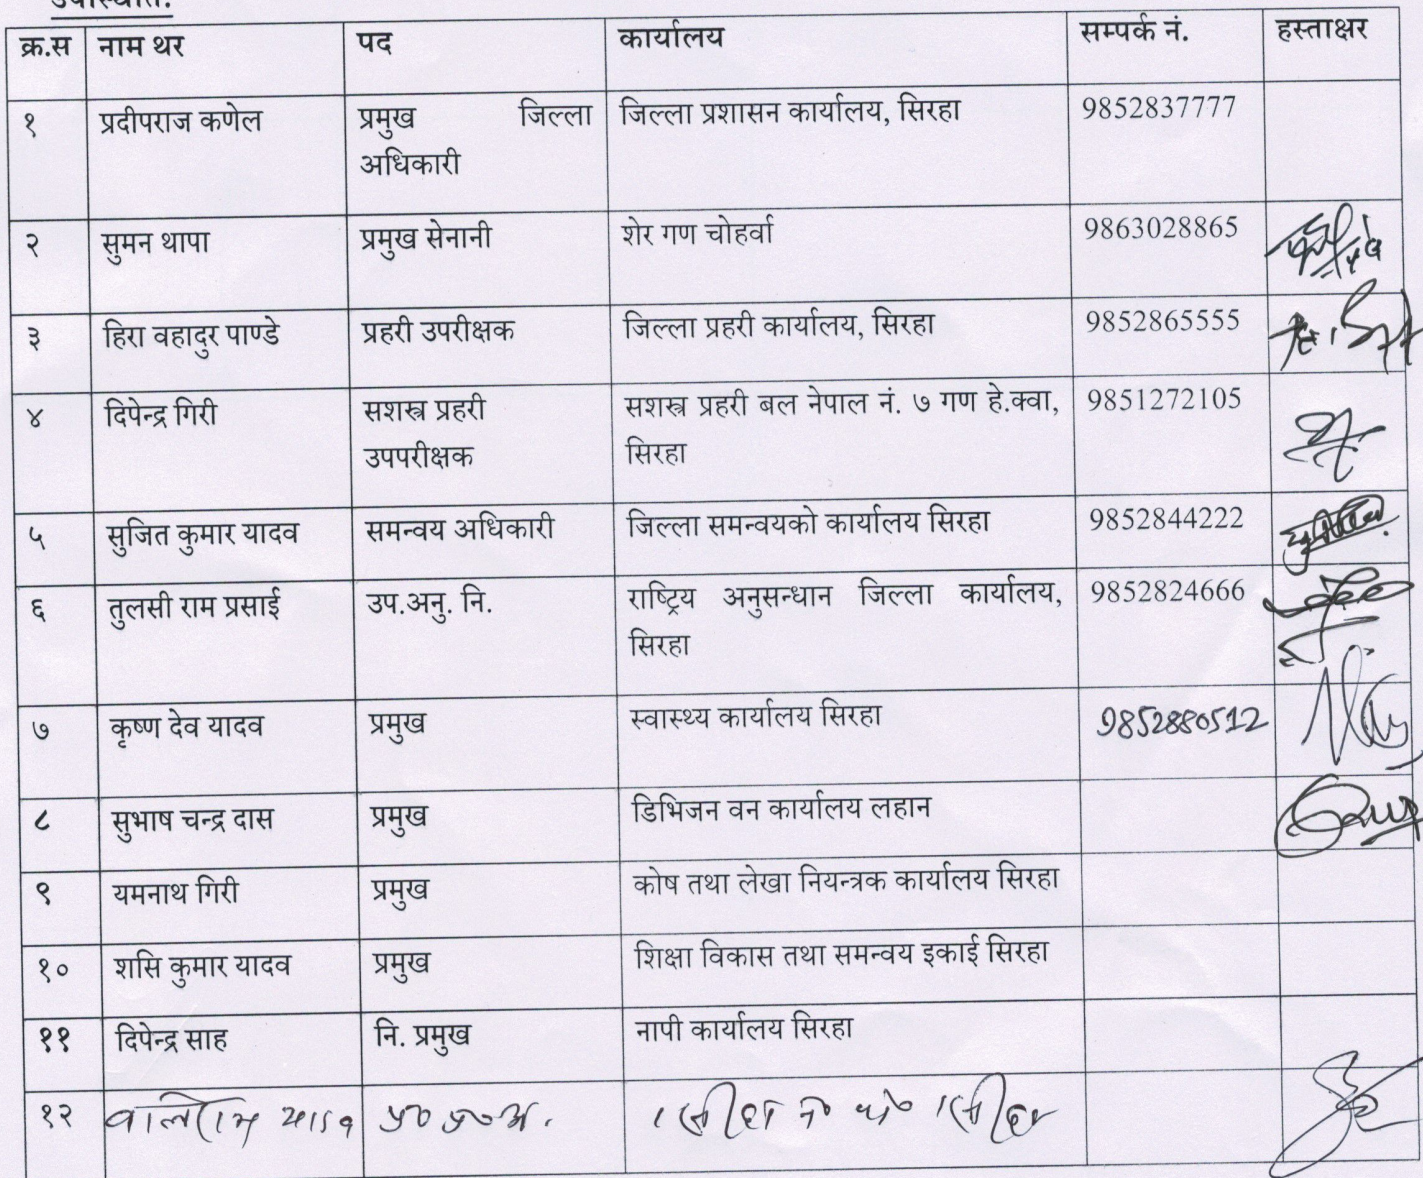 उपस्थितिः
क्र.स नाम थर पद कार्यालय सम्पर्क नं. हस्ताक्षर
१ प्रदीपराज कणेल प्रमुख जिल्ला जिल्ला प्रशासन कार्यालय, सिरहा 9852837777
अधिकारी
२ सुमन थापा प्रमुख सेनानी शेर गण चोहर्वा 9863028865
३ हिरा वहादुर पाण्डे प्रहरी उपरीक्षक जिल्ला प्रहरी कार्यालय, सिरहा 9852865555
४ दिपेन्द्र गिरी सशस्त्र प्रहरी सशस्त्र प्रहरी बल नेपाल नं. ७ गण हे.क्वा, 9851272105
उपपरीक्षक सिरहा
५ सुजित कुमार यादव समन्वय अधिकारी जिल्ला समन्वयको कार्यालय सिरहा 9852844222
६ तुलसी राम प्रसाई उप.अनु. नि. राष्ट्रिय अनुसन्धान जिल्ला कार्यालय, 9852824666
सिरहा
७ कृष्ण देव यादव प्रमुख स्वास्थ्य कार्यालय सिरहा 9852880512
८ सुभाष चन्द्र दास प्रमुख डिभिजन वन कार्यालय लहान
९ यमनाथ गिरी प्रमुख कोष तथा लेखा नियन्त्रक कार्यालय सिरहा
१० शसि कुमार यादव प्रमुख शिक्षा विकास तथा समन्वय इकाई सिरहा
११ दिपेन्द्र साह नि. प्रमुख नापी कार्यालय सिरहा
१२